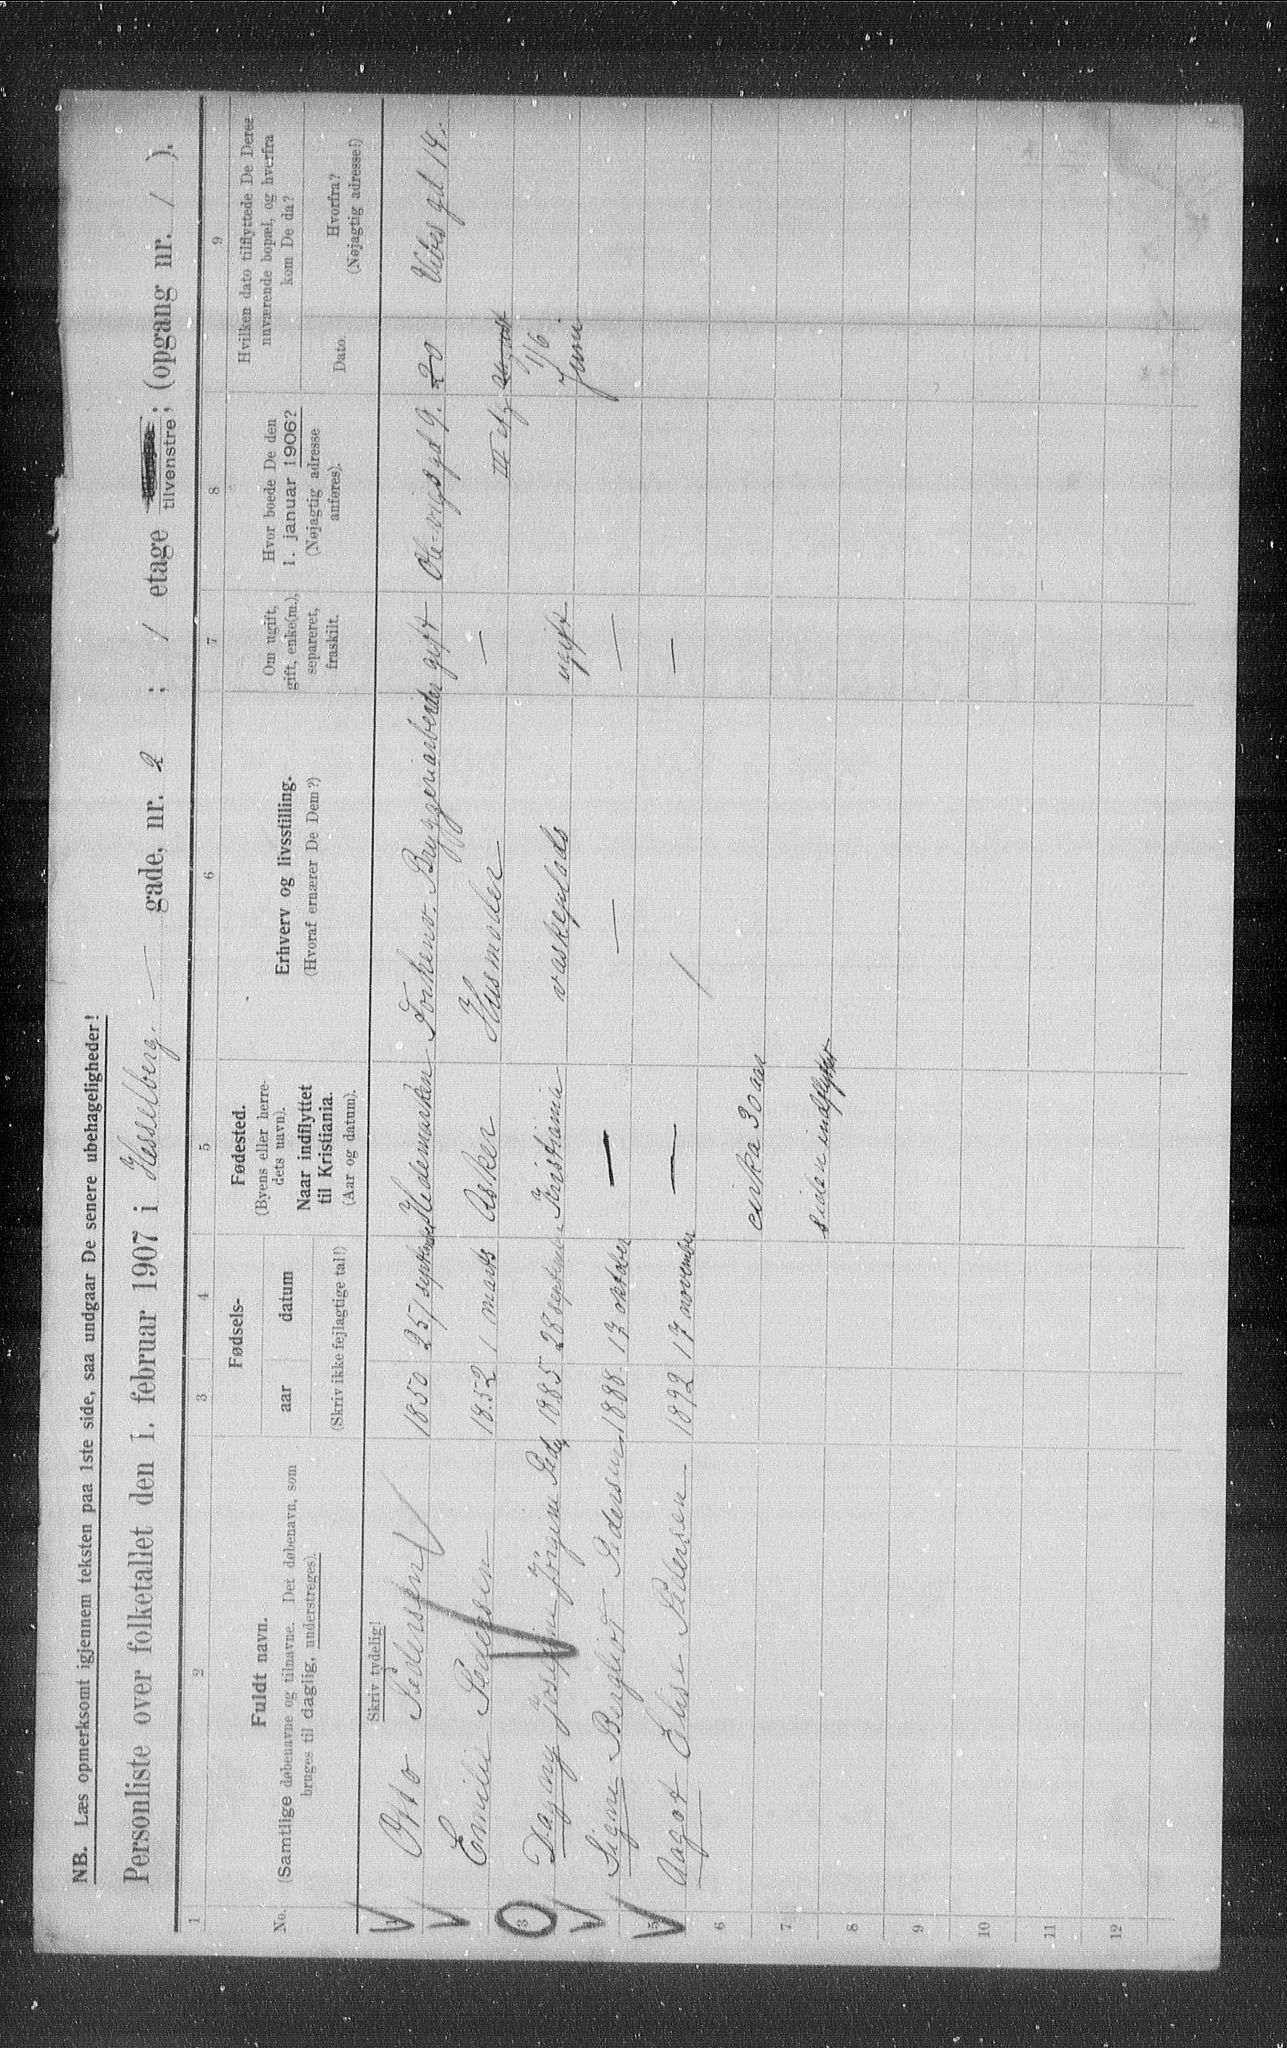 NB. Læs opmerksomt igjennem teksten paa 1ste side, saa undgaar De senere ubehageligheder!
Personliste over folketallet den 1. februar 1907 i Hesselberg gade, nr. 2 ; 1 etage tilvenstre; (opgang nr. 1 ).
1 2 3 4 5 6 7 8 9
No.
Fuldt navn.
(Samtlige døbenavne og tilnavne. Det døbenavn, som
bruges til daglig, understreges).
Fødsels-
aar datum
(Skriv ikke fejlagtige tal!)
Fødested.
(Byens eller herre-
dets navn).
Naar indflyttet
til Kristiania.
(Aar og datum).
Erhverv og livsstilling.
(Hvoraf ernærer De Dem?)
Om ugift,
gift, enke(m.),
separeret,
fraskilt.
Hvor boede De den
1. januar 1906?
(Nøjagtig adresse
anføres).
Hvilken dato tilflyttede De Deres
nuværende bopæl, og hvorfra
kom De da?
Dato.
Hvorfra?
(Nøjagtig adresse!)
Skriv tydelig!
1 Otto Pedersen 1850 25 september Hedemarken Forhenv. Bryggeriarbeider gift Ole-vigs gd 9. 20 Vibes gd 14.
2 Emilie Pedersen 1852 1 marts Asker Husmoder — III etg august
3 Dagny Josefine Jörgine Ped 1885 28 september Kristiania vaskeplads ugift 1/6 Juni
4 Signe Bergliot Pedersen 1888 17 oktober — — —
5 Aagot Elise Pedersen. 1892 17 november — / —
6 cirka 30 aar
7 siden indflyttet
8
9
10
11
12